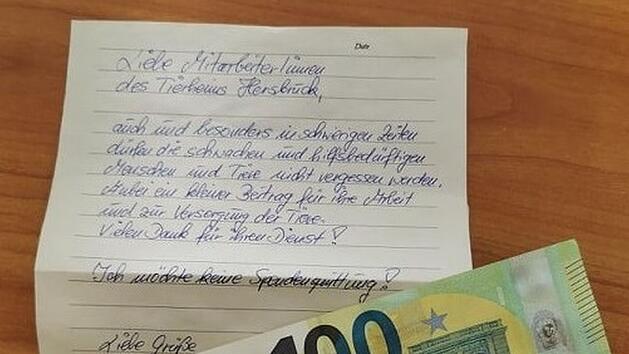 Date
Liebe MitarbeiterInnen
des Tierheims Hersbruck,
auch und besonders in schwierigen Zeiten
dürfen die schwachen und hilfsbedürftigen
Menschen und Tiere nicht vergessen werden.
Anbei ein kleiner Beitrag für ihre Arbeit
und zur Versorgung der Tiere.
Vielen Dank für ihren Dienst!
Ich möchte keine Spendenquittung!
Liebe Grüße
100